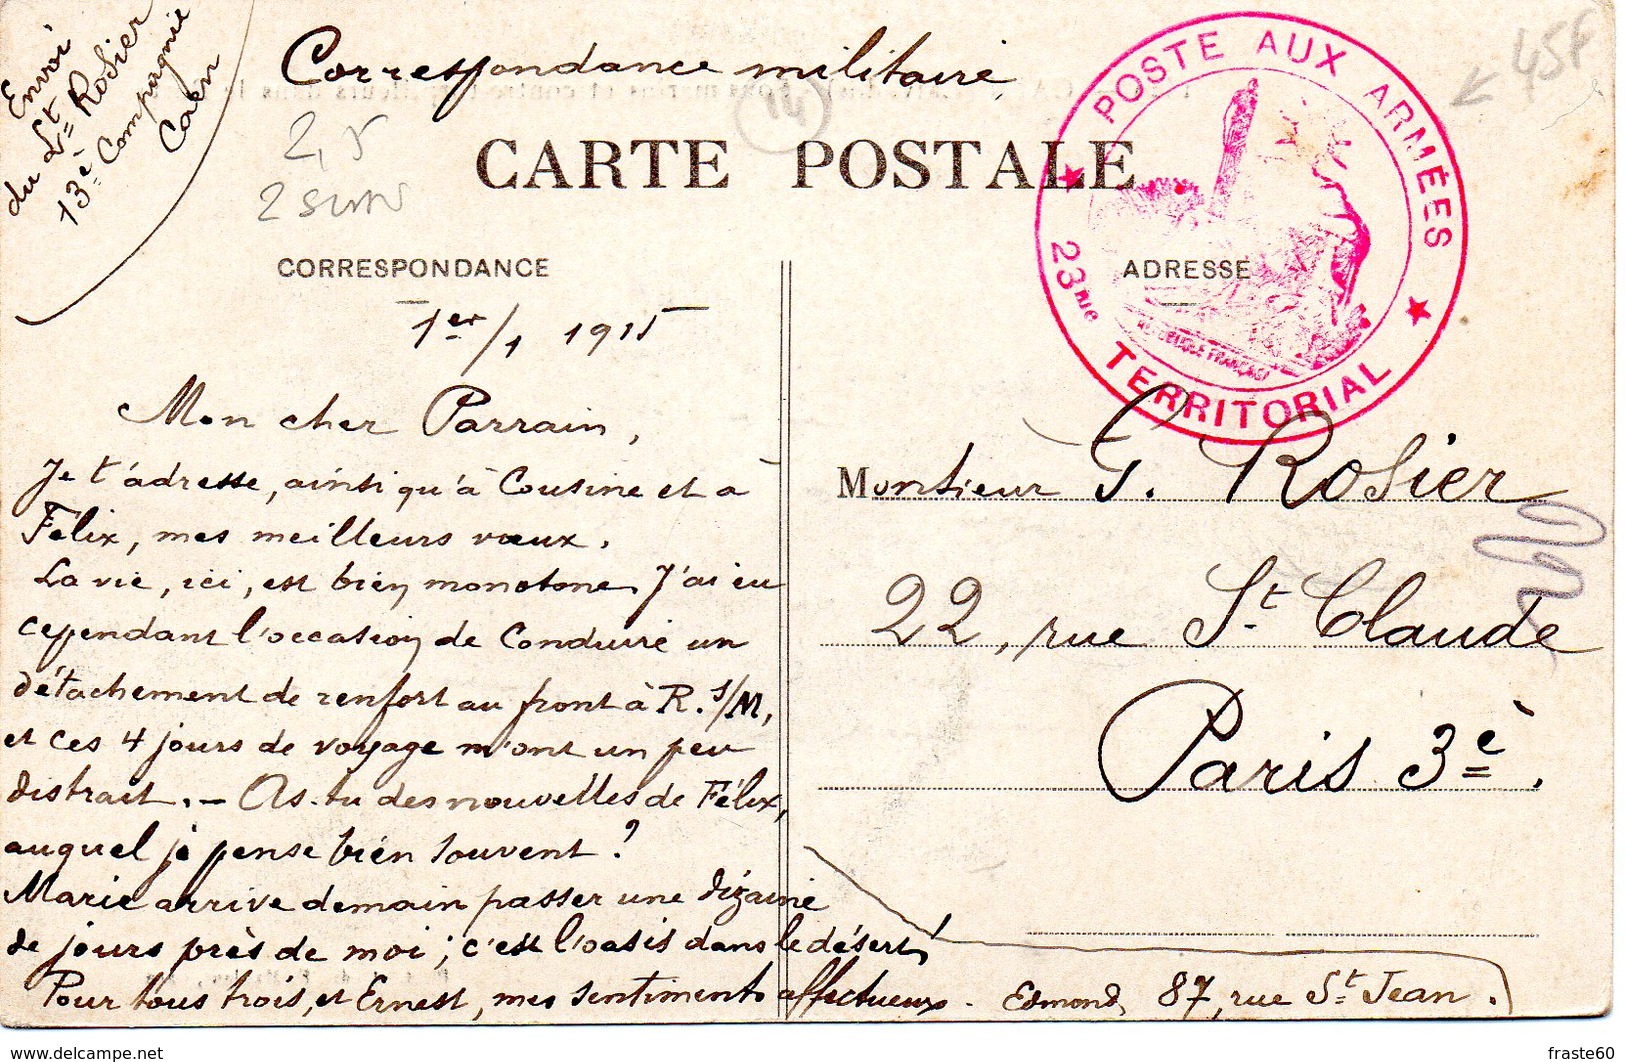 Envoi
du Lt Rosier
13è Compagnie
Caen
Correspondance militaire
45F
14
2,5
CARTE POSTALE
POSTE AUX ARMÉES
23me TERRITORIAL
REPUBLIQUE FRANÇAISE
CORRESPONDANCE
ADRESSE
1er/1 1915
Mon cher Parrain,
Je t'adresse, ainsi qu'à Cousine et à
Félix, mes meilleurs vœux.
La vie, ici, est bien monotone. J'ai eu
cependant l'occasion de conduire un
détachement de renfort au front à R. s/M,
et ces 4 jours de voyage m'ont un peu
distrait. — As-tu des nouvelles de Félix,
auquel je pense bien souvent ?
Marie arrive demain passer une dizaine
de jours près de moi ; c'est l'oasis dans le désert !
Pour tous trois, et Ernest, mes sentiments affectueux. Edmond, 87, rue St Jean.
Monsieur G. Rosier
22, rue St Claude
Paris 3è.
https://www.delcampe.net
fraste60